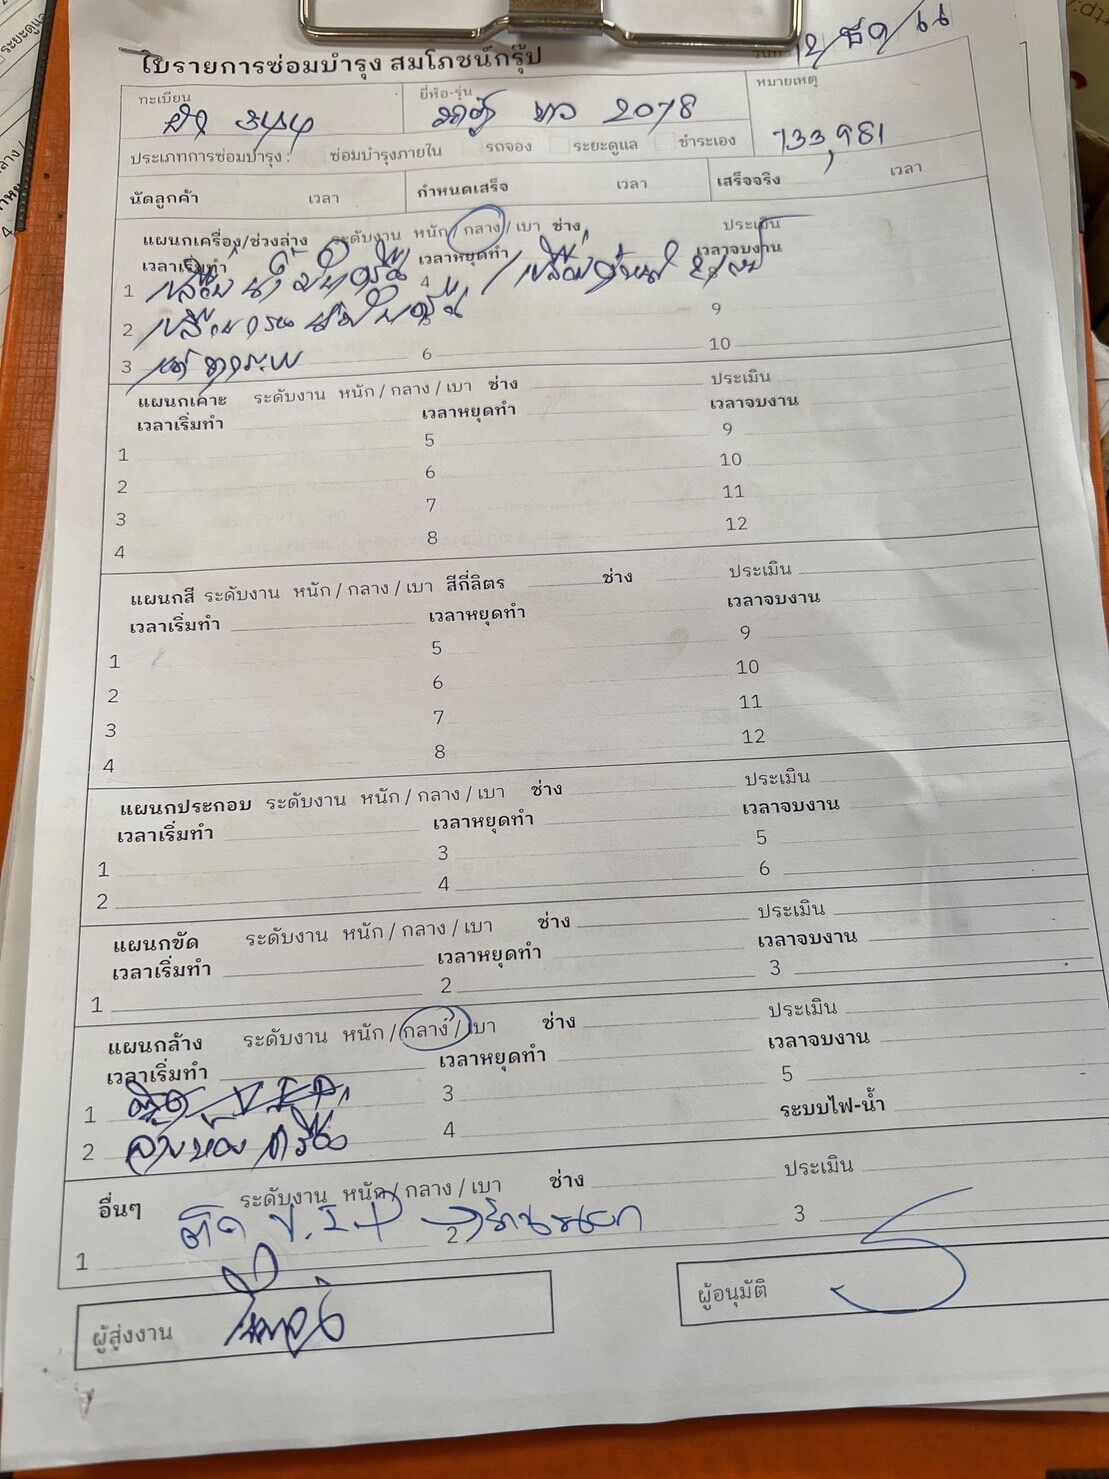 ใบรายการซ่อมบำรุง สมโภชน์กรุ๊ป
ทะเบียน ยี่ห้อ-รุ่น หมายเหตุ
344 ขาว 2018
133,981
ประเภทการซ่อมบำรุง : ซ่อมบำรุงภายใน รถจอง ระยะดูแล ชำระเอง
นัดลูกค้า เวลา กำหนดเสร็จ เวลา เสร็จจริง เวลา
แผนกเครื่อง/ช่วงล่าง ระดับงาน หนัก / กลาง / เบา ช่าง ประเมิน
เวลาเริ่มทำ เวลาหยุดทำ เวลาจบงาน
1 เปลี่ยนน้ำมันเครื่อง 4
2 เปลี่ยนกรองน้ำมันเครื่อง 9
3 6 10
แผนกเคาะ ระดับงาน หนัก / กลาง / เบา ช่าง ประเมิน
เวลาเริ่มทำ เวลาหยุดทำ เวลาจบงาน
1 5 9
2 6 10
3 7 11
4 8 12
แผนกสี ระดับงาน หนัก / กลาง / เบา สีกี่ลิตร ช่าง ประเมิน
เวลาเริ่มทำ เวลาหยุดทำ เวลาจบงาน
1 5 9
2 6 10
3 7 11
4 8 12
แผนกประกอบ ระดับงาน หนัก / กลาง / เบา ช่าง ประเมิน
เวลาเริ่มทำ เวลาหยุดทำ เวลาจบงาน
1 3 5
2 4 6
แผนกขัด ระดับงาน หนัก / กลาง / เบา ช่าง ประเมิน
เวลาเริ่มทำ เวลาหยุดทำ เวลาจบงาน
1 2 3
แผนกล้าง ระดับงาน หนัก / กลาง / เบา ช่าง ประเมิน
เวลาเริ่มทำ เวลาหยุดทำ เวลาจบงาน
1 3 5
2 ล้างห้องเครื่อง 4 ระบบไฟ-น้ำ
อื่นๆ ระดับงาน หนัก / กลาง / เบา ช่าง ประเมิน
1 ติด V.I.P 2 3
ผู้ส่งงาน ผู้อนุมัติ